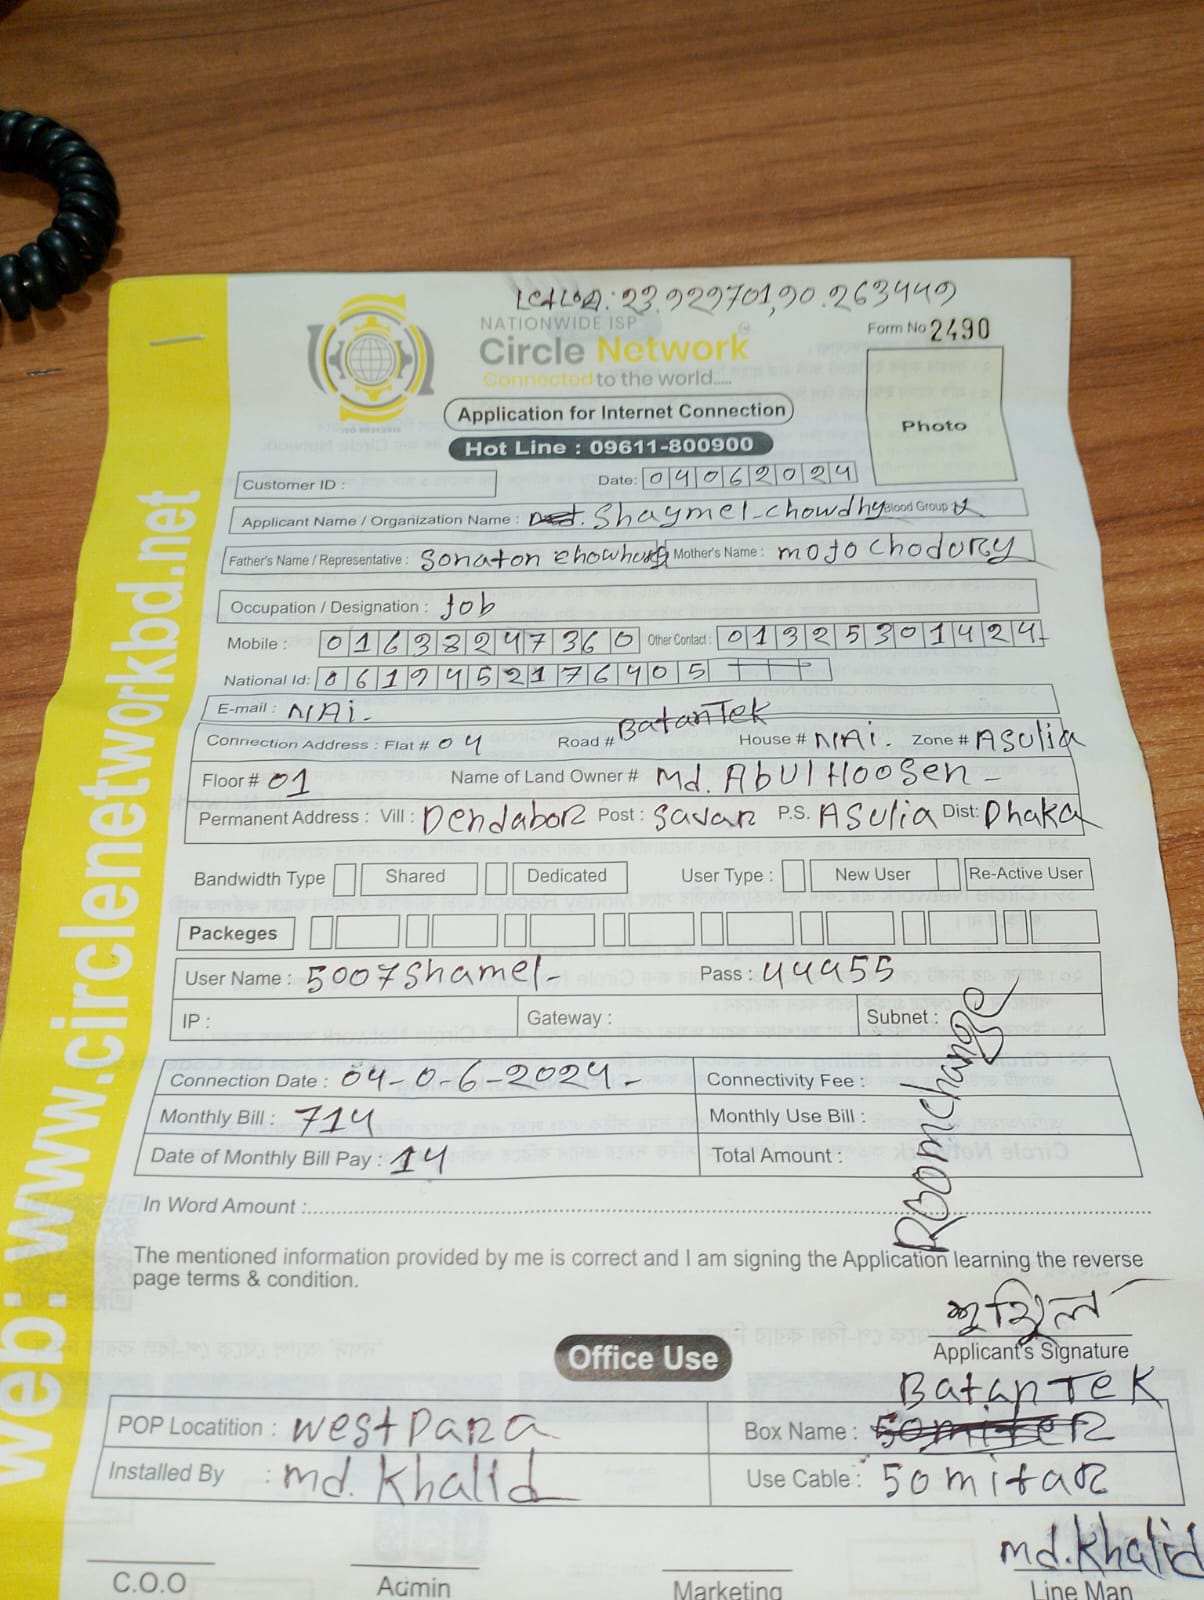 Location: 23.922701,90.263449
NATIONWIDE ISP
Circle Network
Connected to the world.....
Form No 2490
Photo
Application for Internet Connection
Hot Line : 09611-800900
Customer ID :
Date: 04062024
Applicant Name / Organization Name : Shaymel-chowdhy Blood Group
Father's Name / Representative : Sonaton Mother's Name : mojo Chodury
Occupation / Designation : Job
Mobile : 01638247360 Other Contact : 01325301424
National Id:
E-mail : N/Ai-
Connection Address : Flat # 04 Road # BatanTek House # N/Ai. Zone # ASulia
Floor # 01 Name of Land Owner # Md. Abul Hoosen-
Permanent Address : Vill : Dendabor Post : Savar P.S. ASulia Dist: Dhaka
Bandwidth Type Shared Dedicated User Type : New User Re-Active User
Packeges
User Name : 5007Shamel- Pass : 44955
IP : Gateway : Subnet :
Connection Date : 04-0-6-2024- Connectivity Fee :
Monthly Bill : 714 Monthly Use Bill :
Date of Monthly Bill Pay : 14 Total Amount :
Room change
In Word Amount :
The mentioned information provided by me is correct and I am signing the Application learning the reverse
page terms & condition.
Applicant's Signature
Office Use
BatanTek
POP Locatition : westpara Box Name :
Installed By : md. Khalid Use Cable : 50 mitar
md. Khalid
C.O.O Admin Marketing Line Man
web: www.circlenetworkbd.net